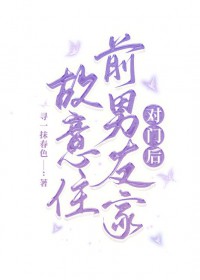 故意住
前男友家
对门后
寻一抹春色——著